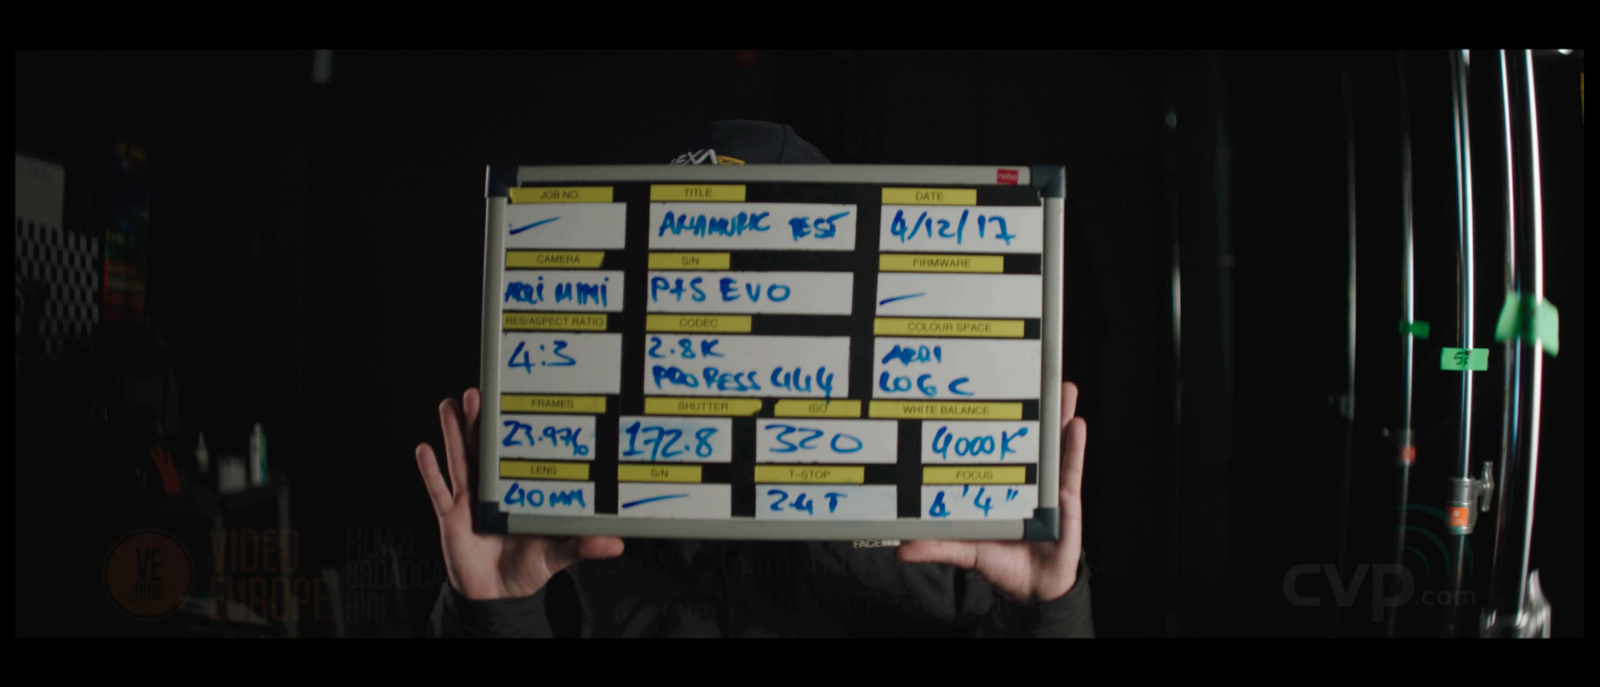 EXA
nobo
JOB NO. TITLE DATE
ANAMORPHIC TEST 4/12/17
CAMERA S/N FIRMWARE
ARRI MINI P+S EVO
RES/ASPECT RATIO CODEC COLOUR SPACE
4:3 2.8K ARRI
PRORESS 444 LOG C
FRAMES SHUTTER ISO WHITE BALANCE
23.976 172.8 320 4000K°
LENS S/N T-STOP FOCUS
40MM 2.4 T 4'4"
FACE
VE
HIRE
VIDEO
EUROPE
FILM &
BROADCAST
HIRE
cvp.com